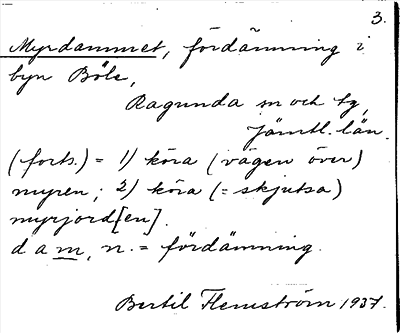 3.
Myrdammet, fördämning i
byn Böle,
Ragunda sn och tg,
Jämtl. län.
(forts.) = 1) köra (vägen över)
myren; 2) köra (= skjutsa)
myrjord[en].
dam, n. = fördämning.
Bertil Flemström 1937.